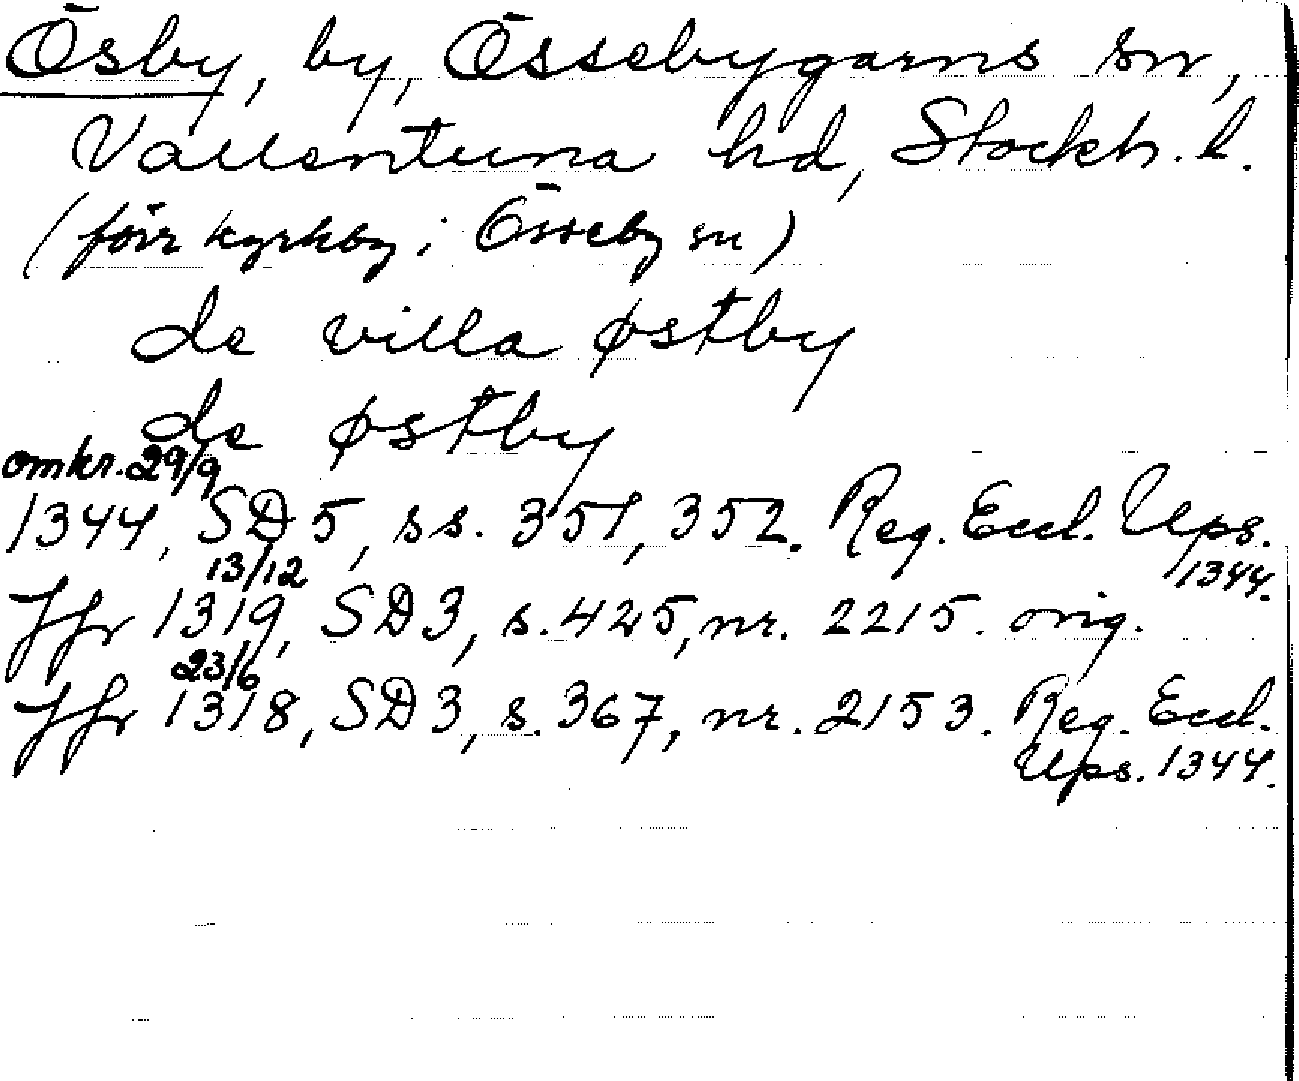 Ösby, by, Össebygarns sn,
Vallentuna hd, Stockh. l.
(förr kyrkby i Össeby sn)
de villa østby
de østby
omkr. 29/9
1344, SD 5, ss. 351, 352. Reg. Eccl. Ups. 1344.
Jfr 13/12 1319, SD 3, s. 425, nr. 2215. orig.
Jfr 23/6 1318, SD 3, s. 367, nr. 2153. Reg. Eccl.
Ups. 1344.